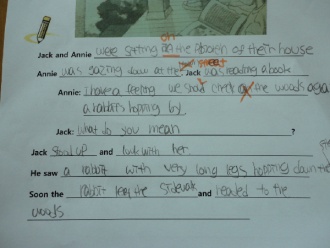 on
Jack and Annie were sitting on the porch of their house
Annie was gazing down at the Jack was reading a book
Annie: I have a feeling we should check the woods again
a rabbit's hopping by.
Jack: What do you mean ?
Jack stood up and look with her.
He saw a rabbit with very long legs hopping down the
Soon the rabbit left the sidewalk and headed to the
woods